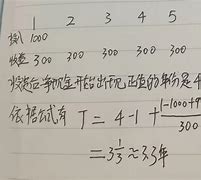 1 2 3 4 5
投入 1000
收益 300 300 300 300 300
净现金开始出现正值的年份是4
依据公式有 T = 4-1 + |-1000+9
300
= 3 1/3 ≈ 3.3年